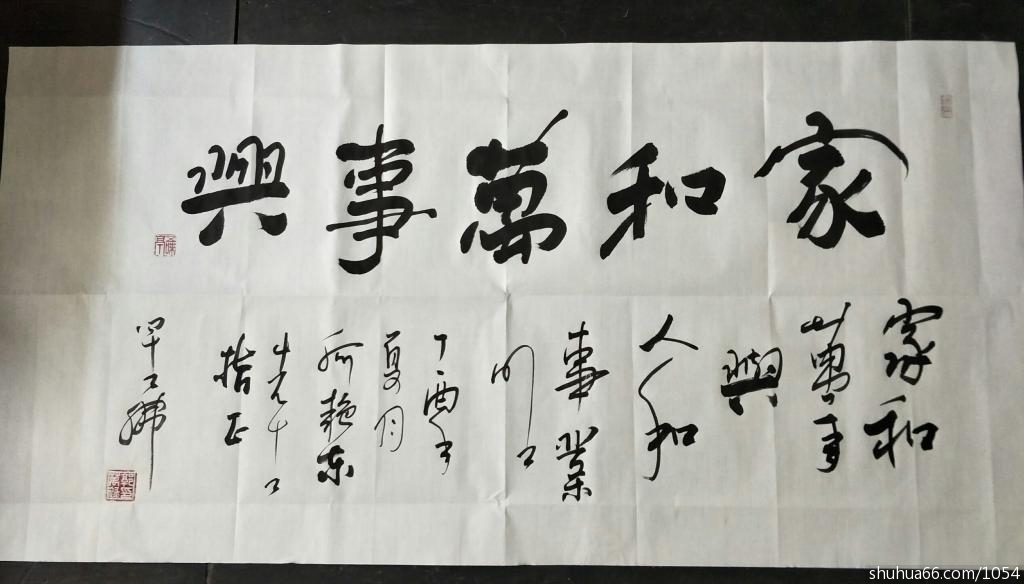 家和萬事興
家和
萬事
興
人和
事業
丁酉年
夏月
艳东
先生
指正
shuhua66.com/1054